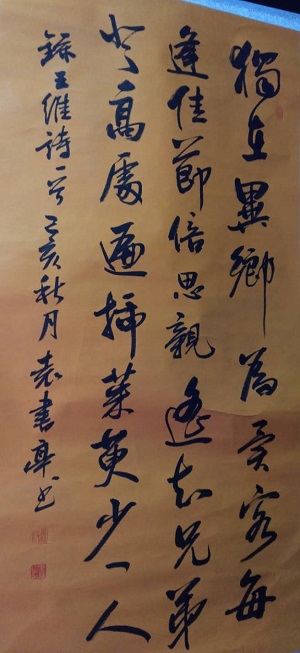 獨在異鄉為異客每
逢佳節倍思親遙知兄弟
登高處遍插茱萸少一人
錄王維詩一首己亥秋月袁書亭书